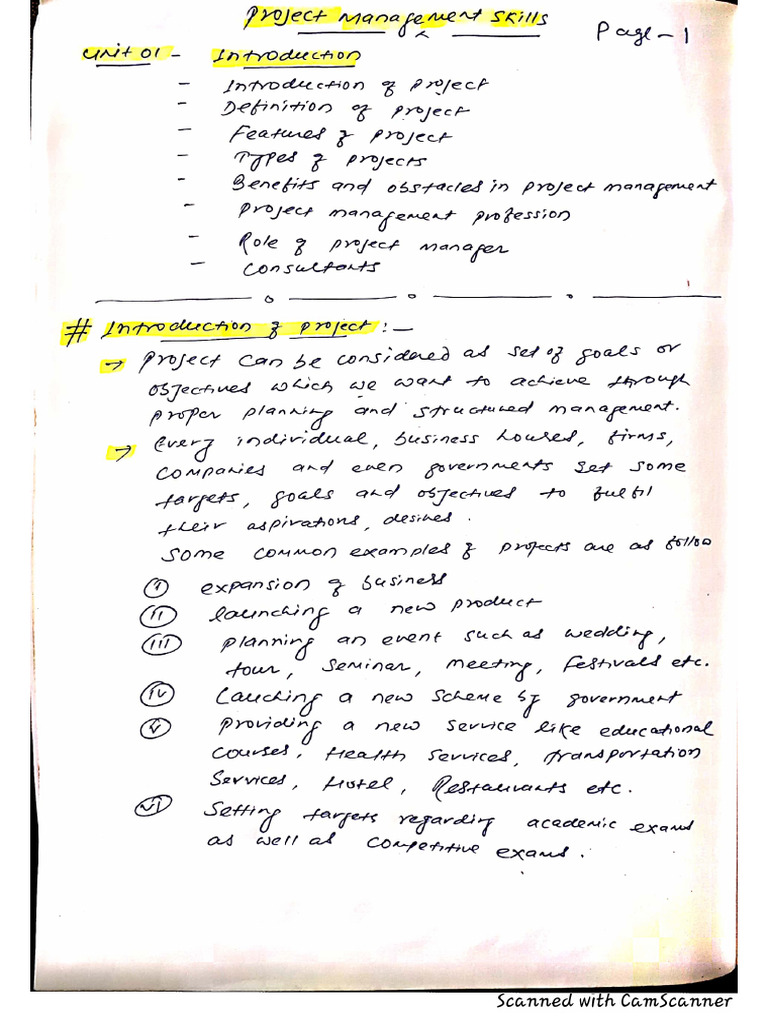 Project Management Skills
Page - 1
Unit 01 - Introduction
- Introduction of project
- Definition of project
- Features of project
- Types of projects
- Benefits and obstacles in project management
- Project management profession
- Role of project manager
- Consultants
# Introduction of project :-
→ Project can be considered as set of goals or
objectives which we want to achieve through
proper planning and structured management.
→ Every individual, business houses, firms,
companies and even governments set some
targets, goals and objectives to fulfil
their aspirations, desires.
Some common examples of projects are as follow
(i) expansion of business
(ii) launching a new product
(iii) planning an event such as wedding,
tour, seminar, meeting, festivals etc.
(iv) Lauching a new scheme by government
(v) providing a new service like educational
courses, Health services, transportation
services, Hotel, Restaurants etc.
(vi) Setting targets regarding academic exams
as well as competitive exams.
Scanned with CamScanner